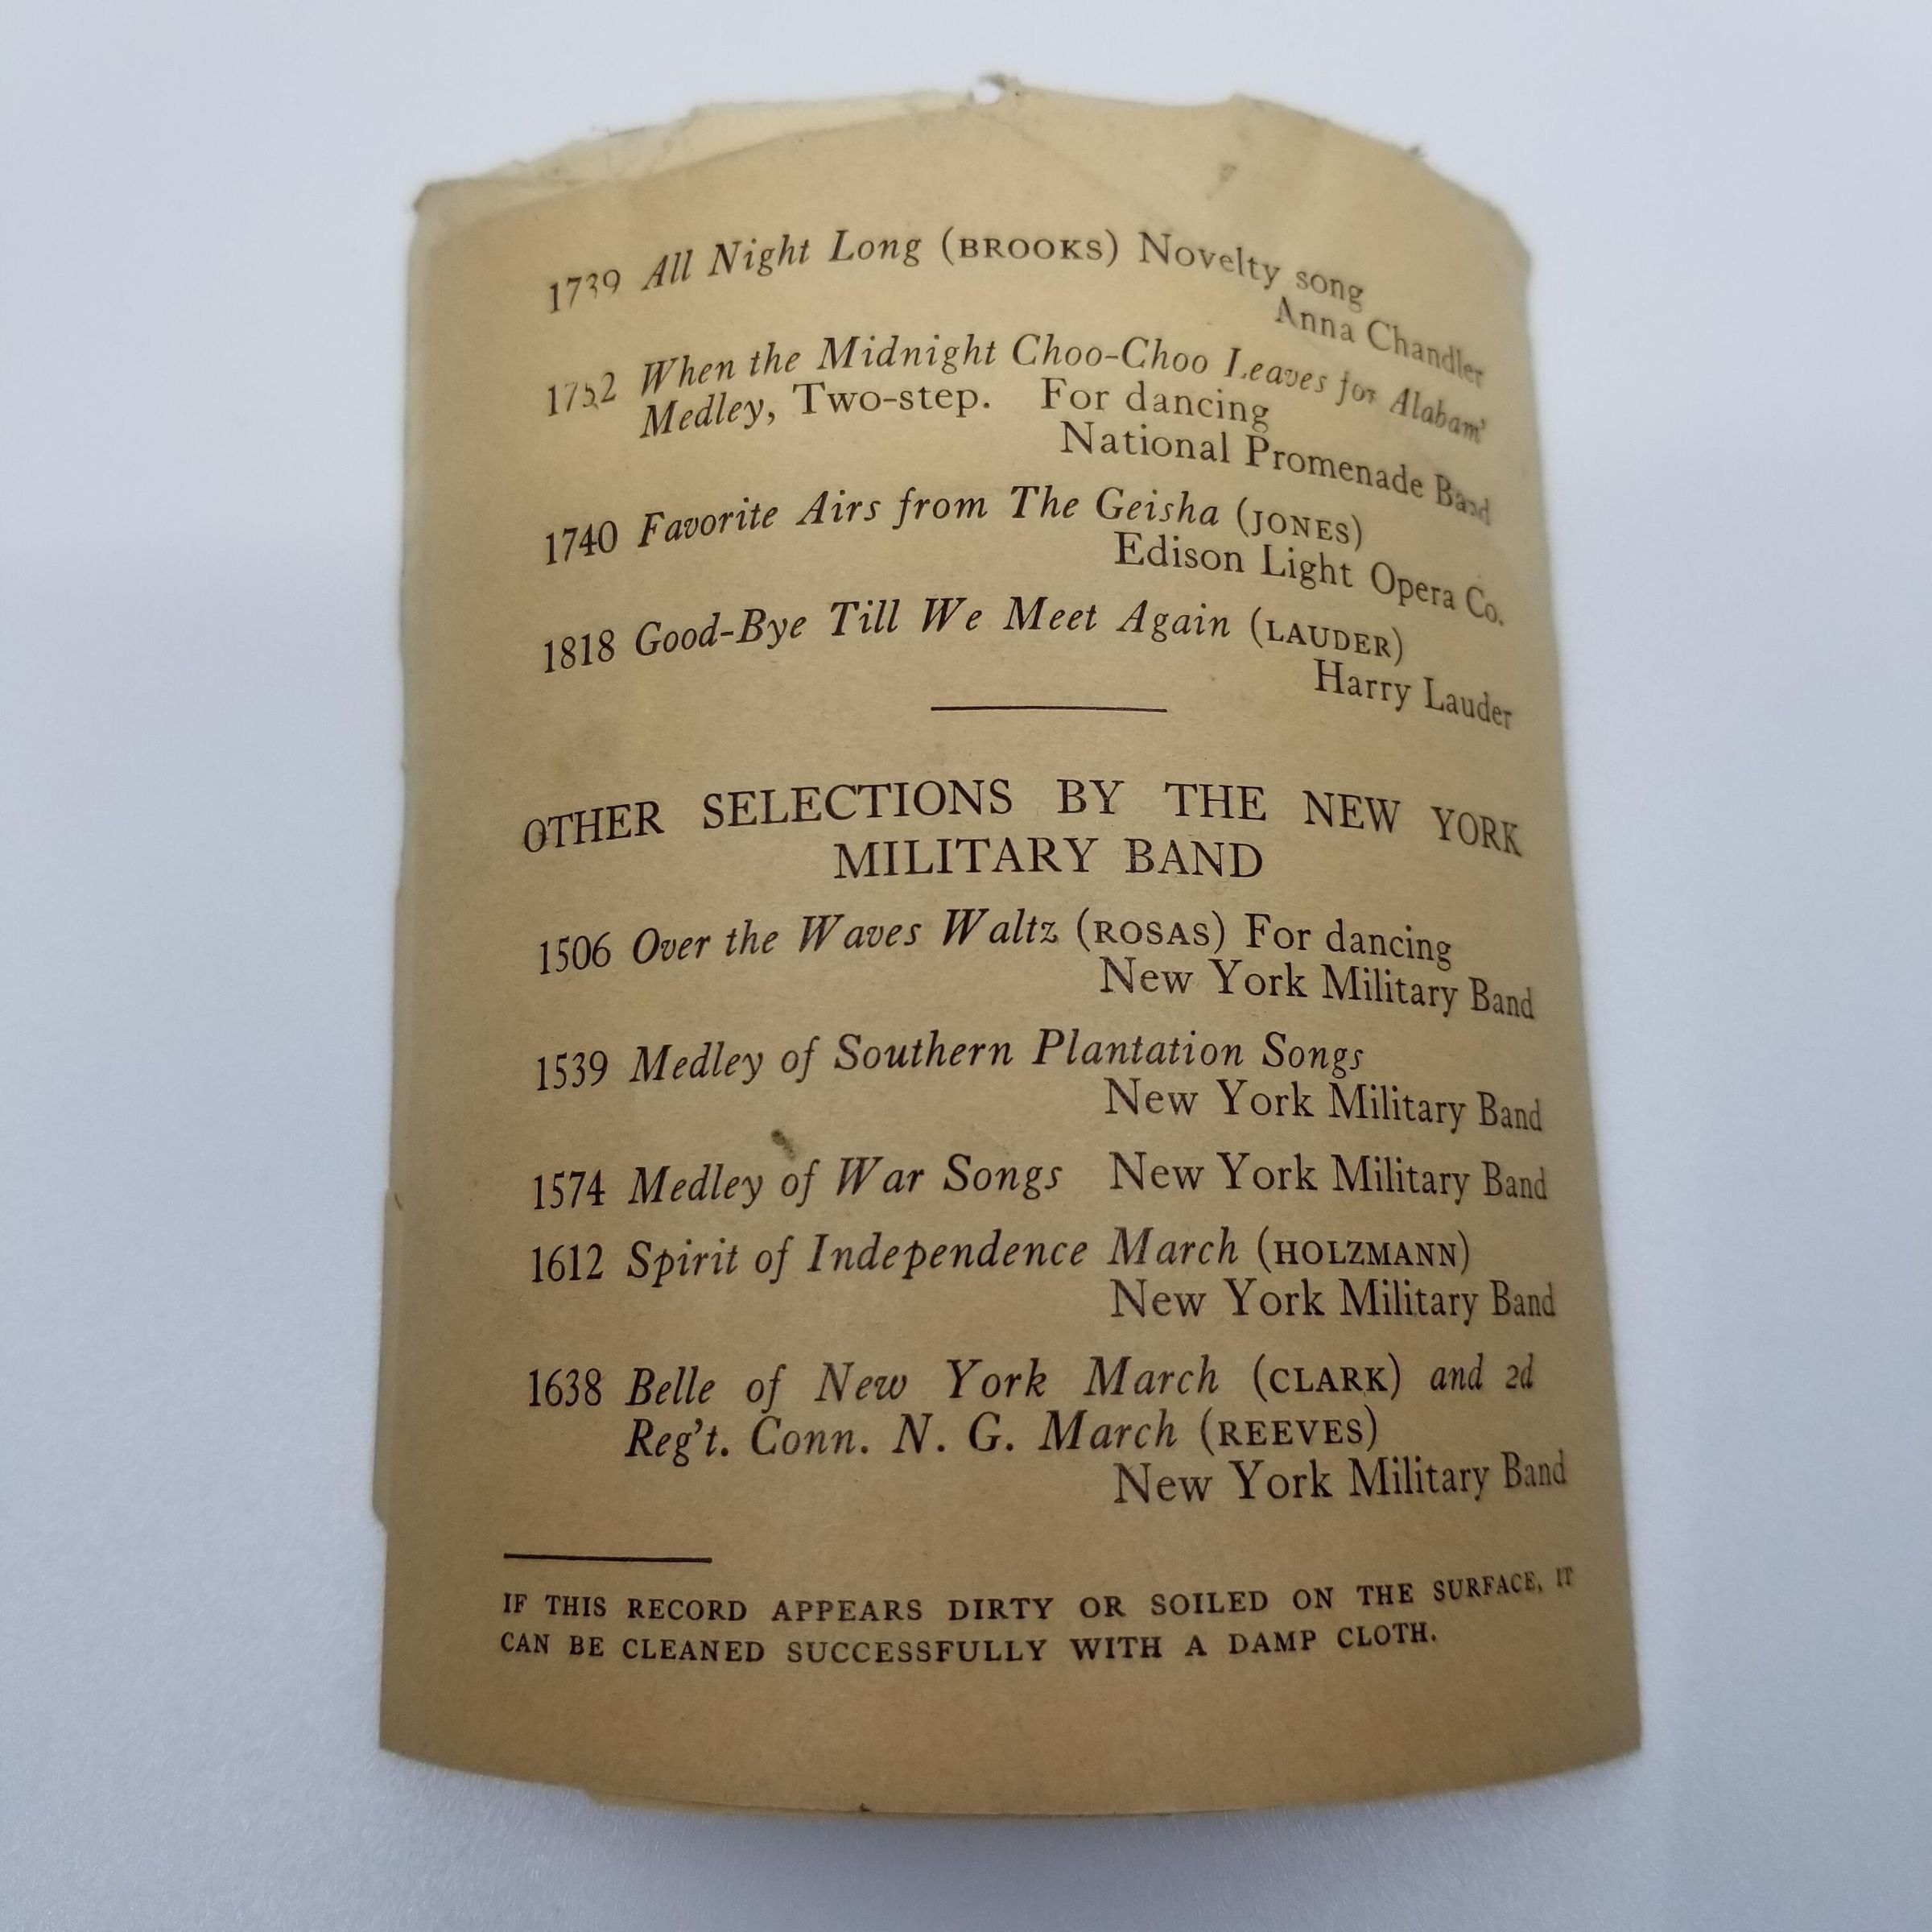 1739 All Night Long (BROOKS) Novelty song
Anna Chandler
1752 When the Midnight Choo-Choo Leaves for Alabam'
Medley, Two-step. For dancing
National Promenade Band
1740 Favorite Airs from The Geisha (JONES)
Edison Light Opera Co.
1818 Good-Bye Till We Meet Again (LAUDER)
Harry Lauder
OTHER SELECTIONS BY THE NEW YORK
MILITARY BAND
1506 Over the Waves Waltz (ROSAS) For dancing
New York Military Band
1539 Medley of Southern Plantation Songs
New York Military Band
1574 Medley of War Songs New York Military Band
1612 Spirit of Independence March (HOLZMANN)
New York Military Band
1638 Belle of New York March (CLARK) and 2d
Reg't. Conn. N. G. March (REEVES)
New York Military Band
IF THIS RECORD APPEARS DIRTY OR SOILED ON THE SURFACE, IT
CAN BE CLEANED SUCCESSFULLY WITH A DAMP CLOTH.